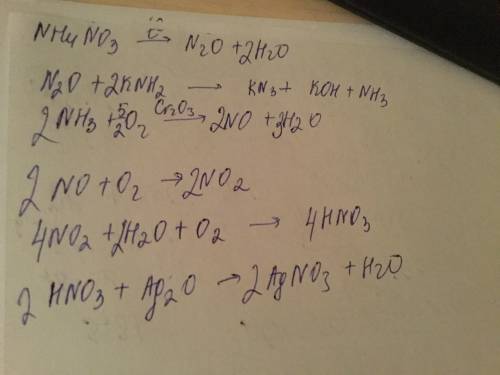 NH4NO3 t° → N2O + 2H2O
N2O + 2KNH2 → KN3 + KOH + NH3
2NH3 + 5/2O2 Cr2O3 → 2NO + 3H2O
2NO + O2 → 2NO2
4NO2 + 2H2O + O2 → 4HNO3
2HNO3 + Ag2O → 2AgNO3 + H2O